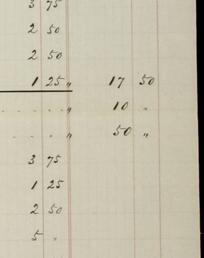 3 75
2 50
2 50
1 25 " 17 50
. . . . " 10 "
. . . " 50 "
3 75
1 25
2 50
5 "